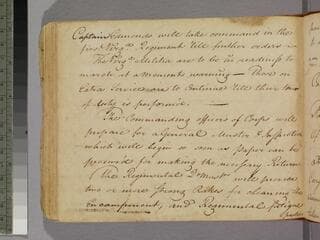 Captain Edmonds will take command in the
first Virga. Regiment till further orders —
The Virga. Militia are to be in readiness to
march at a moments warning — Those on
Extra Service are to Continue till their tour
of duty is performed. —
The Commanding officers of Corps will
prepare for a General Muster & Inspection
which will begin so soon as paper can be
procured for making the necessary Returns
The Regimental Qr Mast will procure
two or more strong Rakes for cleaning the
Encampment, and Regimental fatigue